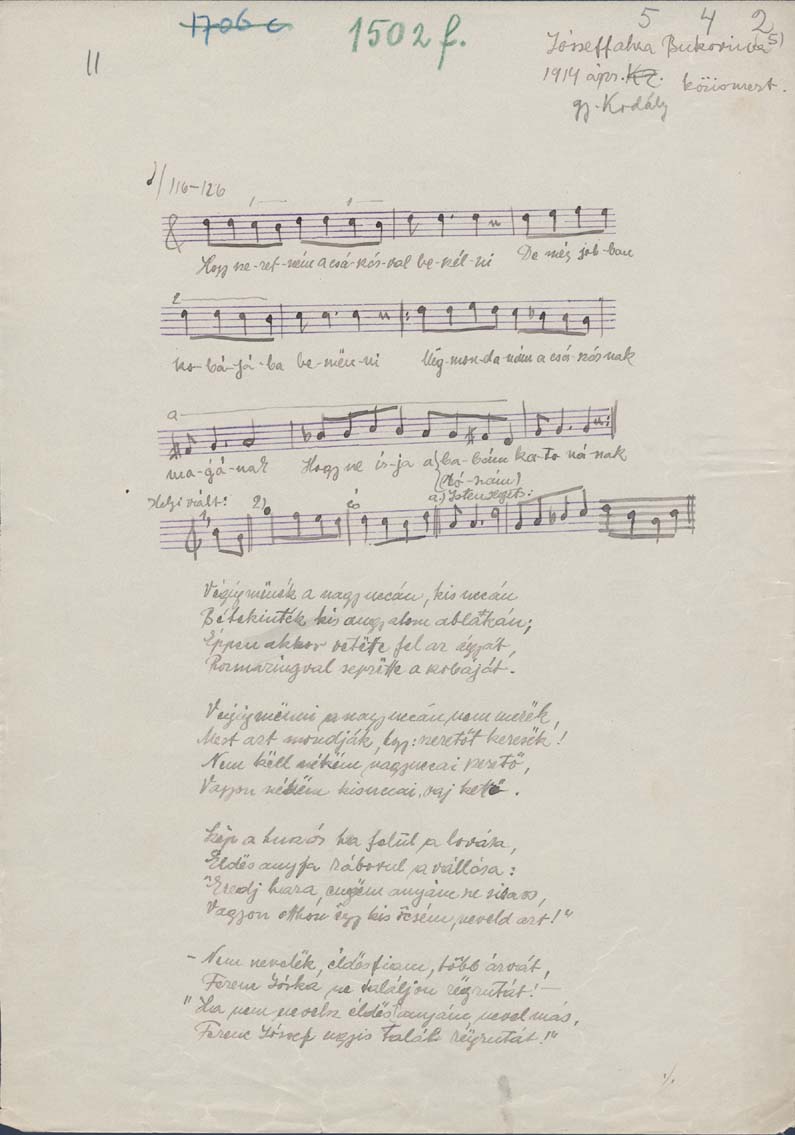 1706 c
1502 f.
5 4 2
11
Józseffalva Bukovina 5)
1914 ápr. Kz.
gy. Kodály
116-126
1
Hogy sze-ret-ném a csá-kós-val be-szél-ni De még job-ban
2
szo-bá-já-ba be-mën-ni Mëg-mon-da-nám a csá-kós-nak
a
ma-gá-nak Hogy ne ír-ja a ba-bám ka-to-ná-nak
(ró-zsám)
Helyi vált: 1, 2) és a.) Istensegíts:
Végigmënék a nagyuccán, kisuccán
Bétekinték kis angyalom ablakán;
Éppen akkor vetëtte fel az ágyát,
Rozmaringval seprëtte a szobáját.
Végigmënni a nagyuccán nem merëk,
Mert azt mondják, hogy: szeretőt keresëk!
Nem këll nékëm nagyuccai szerető,
Vagyon nékëm kisuccai, vaj kettő.
Szép a huszár ha felül a lovára,
Éldësanyja ráborul a vállára:
"Eredj haza, engëm anyám ne sirass,
Vagyon otthon ëgy kis öcsém, neveld azt!"
- Nem nevelëk, éldësfiam, több árvát,
Ferenc Jóska ne találjon rëgrutát! -
"Ha nem nevelsz éldësanyám, nevel más,
Ferenc József ugyis talál rëgrutát!"
./.